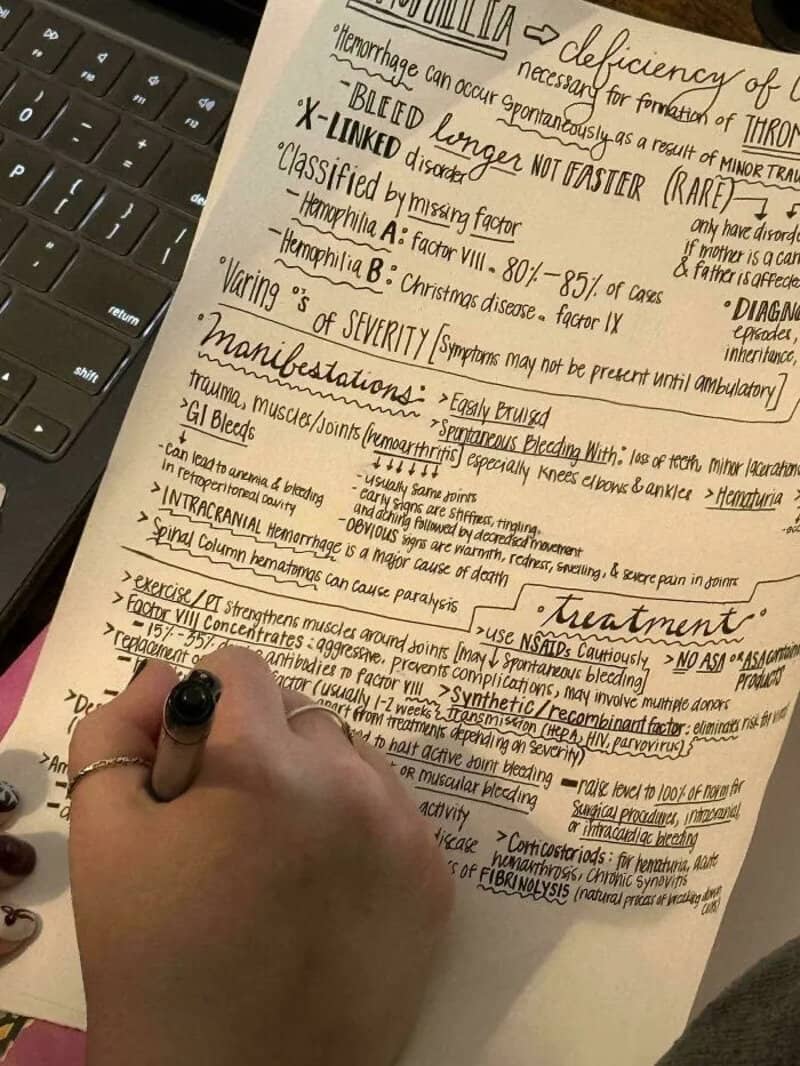 HILIA → deficiency of
necessary for formation of THROM
°Hemorrhage can occur spontaneously as a result of MINOR TRAU
-BLEED longer NOT FASTER (RARE)
°X-LINKED disorder
only have disord
if mother is a car
& father is affecte
°Classified by missing factor
-Hemophilia A: factor VIII. 80%-85% of cases
-Hemophilia B: Christmas disease. factor IX
°DIAGN
episodes,
inheritance,
°Varing °'s of SEVERITY [Symptoms may not be present until ambulatory]
°Manifestations: >Easily Bruised
>Spontaneous Bleeding With: loss of teeth, minor laceration
trauma, muscles/joints (hemoarthritis) especially knees elbows & ankles >Hematuria >
↓↓↓↓↓↓
-usually same joints
-early signs are stiffness, tingling,
and aching followed by decreased movement
-OBVIOUS signs are warmth, redness, swelling, & severe pain in joints
>GI Bleeds
↓
-can lead to anemia & bleeding
in retroperitoneal cavity
>INTRACRANIAL Hemorrhage is a major cause of death
>Spinal Column hematomas can cause paralysis
°treatment°
>exercise/PT strengthens muscles around joints [may ↓ spontaneous bleeding]
>use NSAIDs Cautiously >NO ASA or ASA contain
products
>Factor VIII Concentrates: aggressive, prevents complications, may involve multiple donors
-15%-35% antibodies to factor VIII
>Synthetic/recombinant factor: eliminates risk for viral
transmission (HEPA, HIV, parvovirus)
>replacement factor (usually 1-2 weeks
apart from treatments depending on severity)
to halt active joint bleeding
or muscular bleeding
-raise level to 100% of norm for
surgical procedures, intracranial,
or intracardiac bleeding
activity
disease
>Corticosteriods: for hematuria, acute
hemarthrosis, chronic synovitis
of FIBRINOLYSIS (natural process of breaking down
clots)
>Am
F9
F10
F11
F12
)
0
-
+
=
del
P
{
[
}
]
|
\
:
;
"
'
return
shift